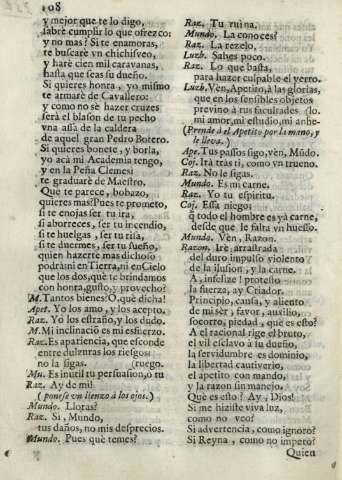 108
y mejor que te lo digo,
sabrè cumplir lo que ofrezco:
y no mas? Si te enamoras,
te buscarè vn chichisveo,
y harè cien mil caravanas,
hasta que seas su dueño.
Si quieres honra, yo mismo
te armarè de Cavallero:
y como no sè hazer cruzes
serà el blason de tu pecho
vna assa de la caldera
de aquel gran Pedro Botero.
Si quieres bonete, y borla,
yo acà mi Academia tengo,
y en la Peña Clemesi
te graduarè de Maestro.
Que te parece, bobazo,
quieres mas? Pues te prometo,
si te enojas ser tu ira,
si aborreces, ser tu incendio,
si te huelgas, ser tu risa,
si te duermes, ser tu sueño,
quien hazerte mas dichoso
podrà ni en Tierra, ni en Cielo
que los dos, que te brindamos
con honra, gusto, y provecho?
M. Tantos bienes! O, què dicha!
Apet. Yo los amo, y los acepto.
Raz. Yo los estraño, y los dudo.
M. Mi inclinaciō es mi esfuerço.
Raz. Es apariencia, que esconde
entre dulzuras los riesgos:
no la sigas. (ruego.
Mu. Es inutil tu persuasion, o tu
Raz. Ay de mi!
(ponese vn lienzo à los ojos.)
Mundo. Lloras?
Raz. Si, Mundo,
tus daños, no mis desprecios.
Mundo. Pues què temes?
Raz. Tu ruina.
Mundo. La conoces?
Raz. La rezelo.
Luzb. Sabes poco.
Raz. Lo que basta,
para hazer culpable el yerro.
Luzb. Vèn, Apetito, à las glorias,
que en los sensibles objetos
previno à tus facultades (lo.
mi amor, mi estudio, mi anhe-
(Prende à el Apetito por la mano, y
le lleva.)
Ape. Tus passos sigo, vèn, Mūdo.
Coj. Irà tràs ti, como vn trueno.
Raz. No le sigas.
Mundo. Es mi carne.
Raz. Yo tu espiritu.
Coj. Essa niego:
q̃ todo el hombre es yà carne,
desde que le falta vn huesso.
Mundo. Vèn, Razon.
Razon. Irè, arrastrada
del duro impulso violento
de la ilusion, y la carne.
A, infelize! protesto
la fuerza, ay Criador,
Principio, causa, y aliento
de mi sèr, favor, auxilio,
socorro, piedad, que es esto?
A el racional rige el bruto,
el vil esclavo à su dueño,
la servidumbre es dominio,
la libertad cautiverio,
el apetito con mando,
y la razon sin manejo.
Què es esto? Ay, Dios!
Si me hiziste viva luz,
como no veo?
Si advertencia, como ignoro?
Si Reyna, como no impero?
Quien